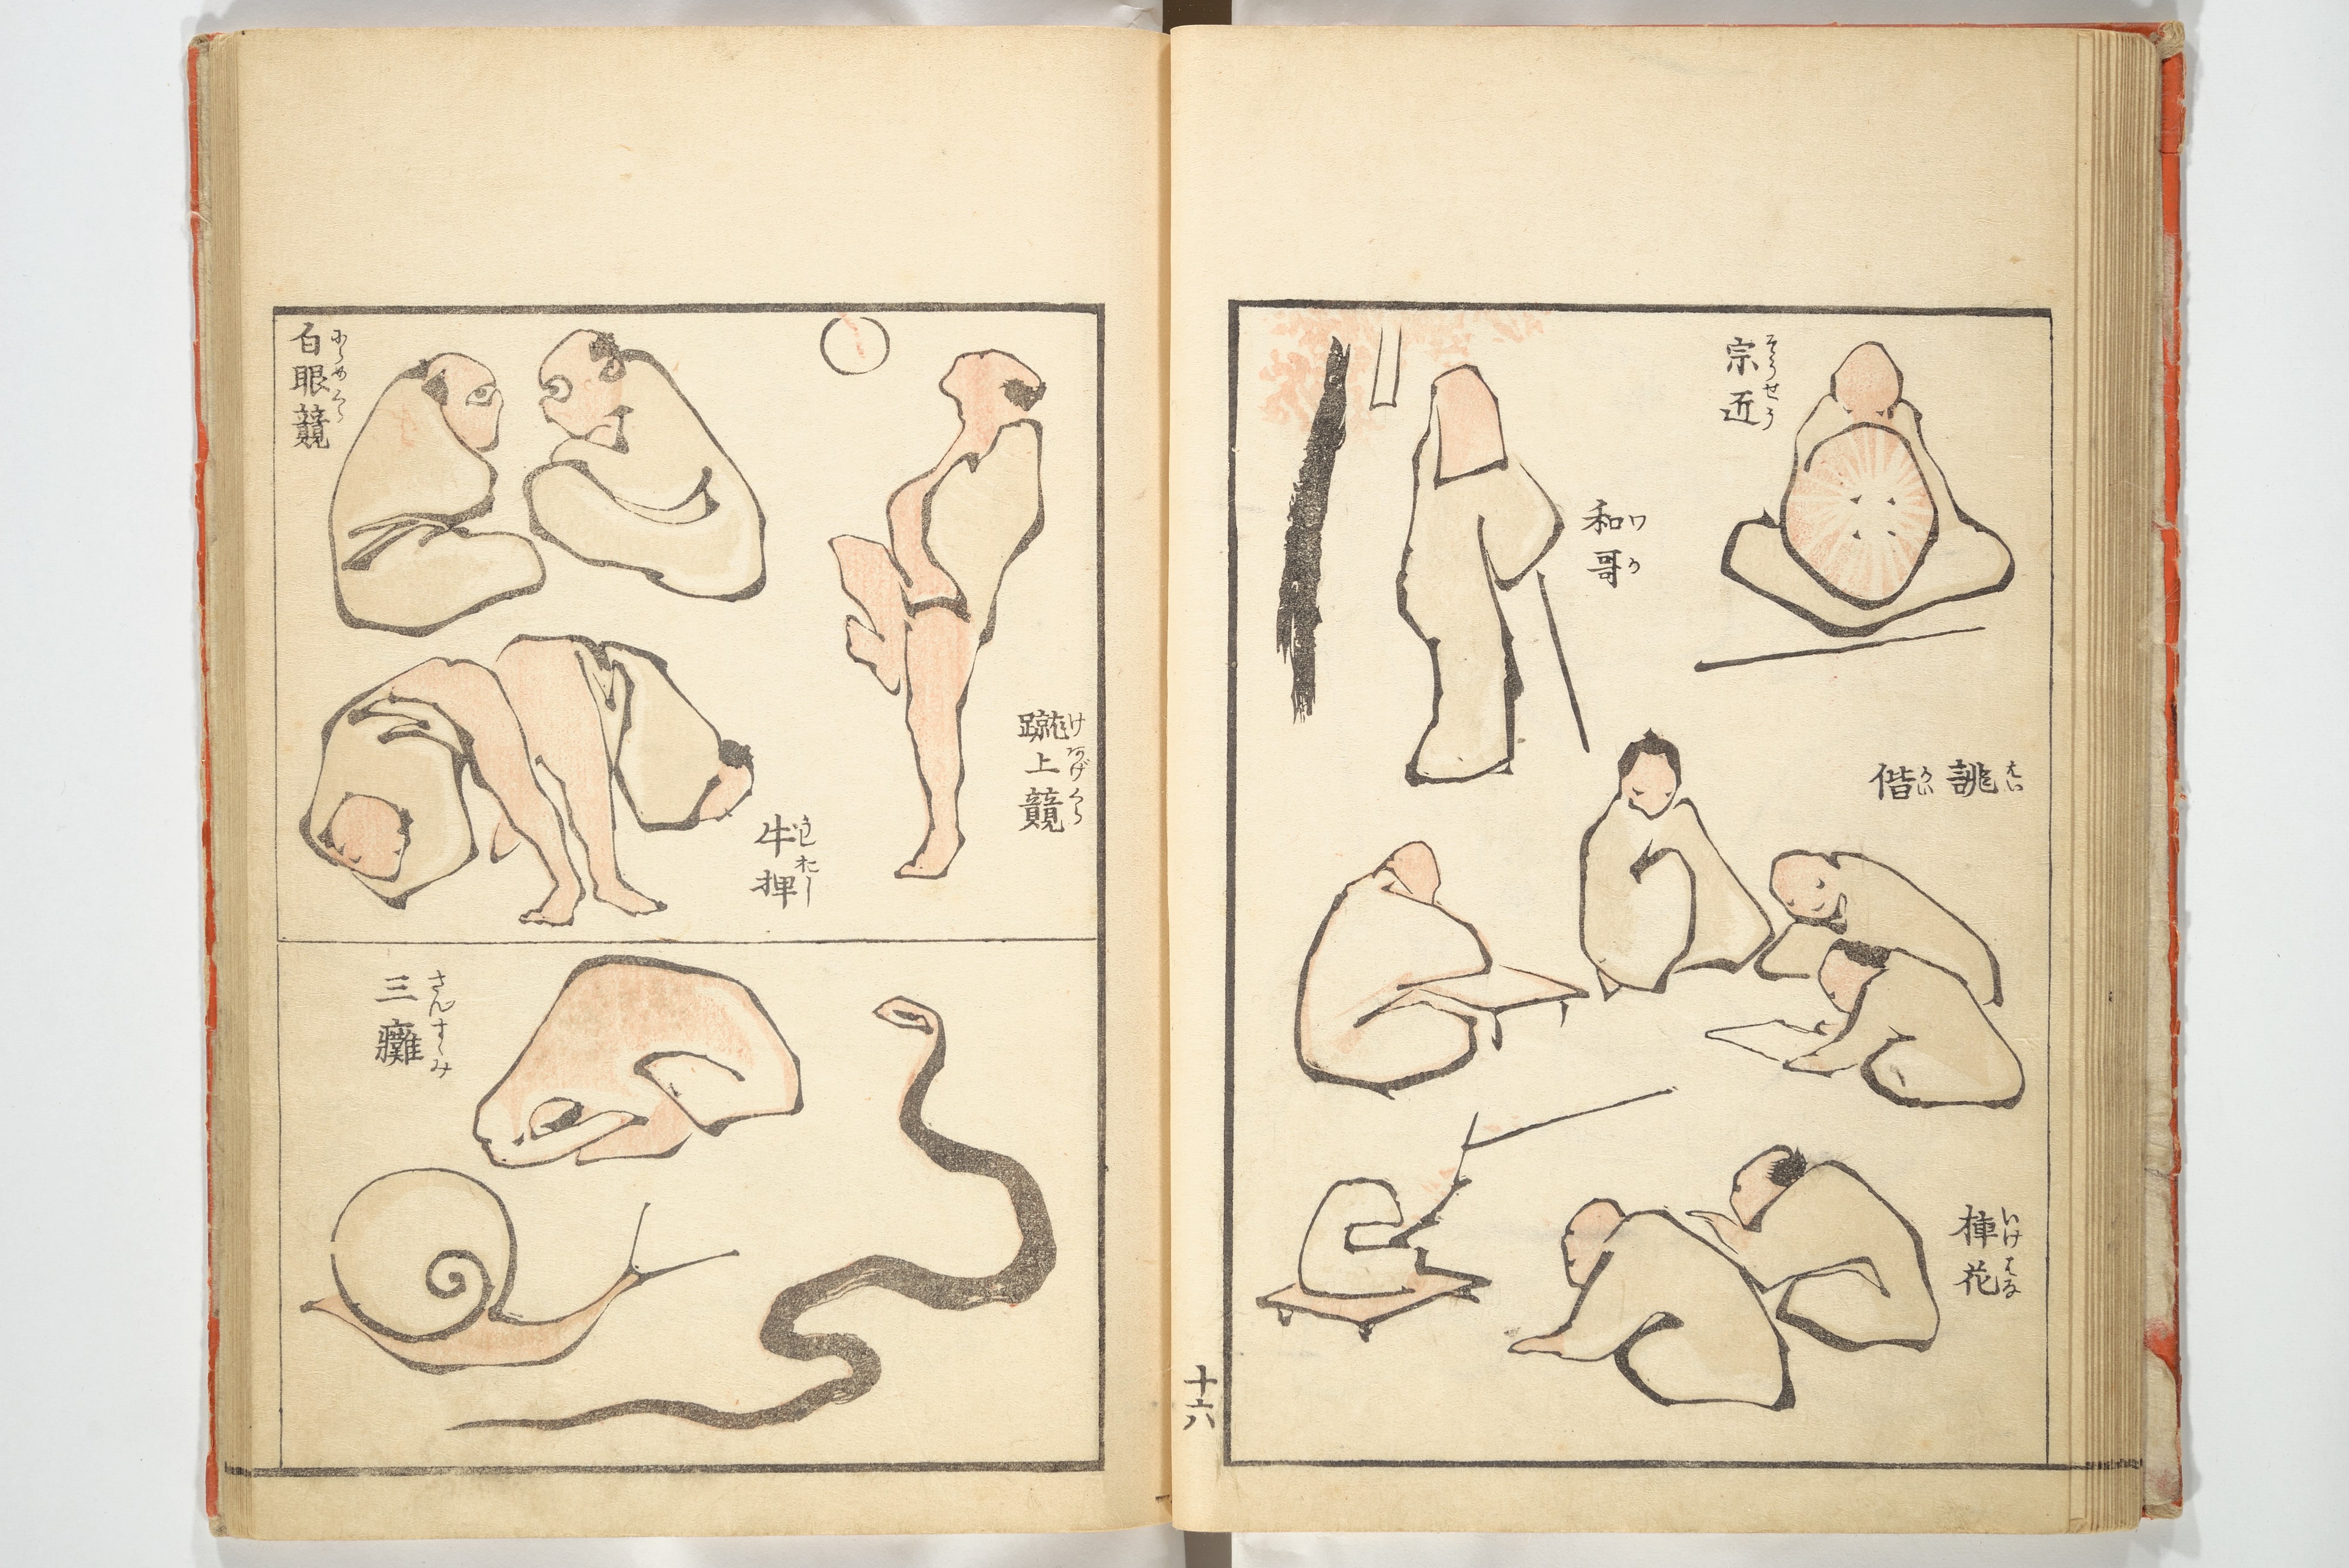 宗近
そうせう
和哥
ワか
誂偕
はいかい
挿花
いけはな
十六
蹴上競
けあげくら
白眼競
にらめくら
牛押
うしおし
三癱
さんすくみ